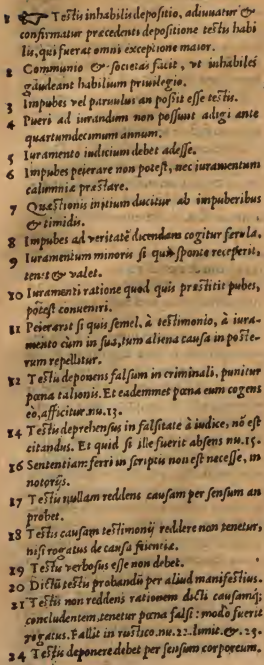 1 ☞ Testis inhabilis depositio, adiuuatur &
confirmatur præcedenti depositione testis habi
lis, qui fuerat omni exceptione maior.
2 Communio & societas facit, vt inhabiles
gaudeant habilium priuilegio.
3 Impubes vel paruulus an possit esse testis.
4 Pueri ad iurandum non possunt adigi ante
quartumdecimum annum.
5 Iuramento iudicium debet adesse.
6 Impubes peierare non potest, nec iuramentum
calumniæ præstare.
7 Quæstionis initium ducitur ab impuberibus
& timidis.
8 Impubes ad veritatē dicendam cogitur ferula.
9 Iuramentum minoris si quis sponte receperit,
tenet & valet.
10 Iuramenti ratione quod quis præstitit pubes,
potest conueniri.
11 Peierarit si quis semel, à testimonio, à iura-
mento cum in sua, tum aliena causa in poste-
rum repellitur.
12 Testis deponens falsum in criminali, punitur
pœna talionis. Et eadem met pœna eum cogens
eò, afficitur. nu. 13.
14 Testis deprehensus in falsitate à iudice, nō est
citandus. Et quid si ille fuerit absens nu. 15.
16 Sententiam ferri in scriptis non est necesse, in
notorijs.
17 Testis nullam reddens causam per sensum an
probet.
18 Testis causam testimonij reddere non tenetur,
nisi rogatus de causa scientiæ.
19 Testis verbosus esse non debet.
20 Dictū testis probandū per aliud manifestius.
21 Testis non reddens rationem dicti causamq;
concludentem, tenetur pœna falsi: modo fuerit
rogatus. Fallit in rustico. nu. 22. limit. & . 23.
24 Testis deponere debet per sensum corporeum.